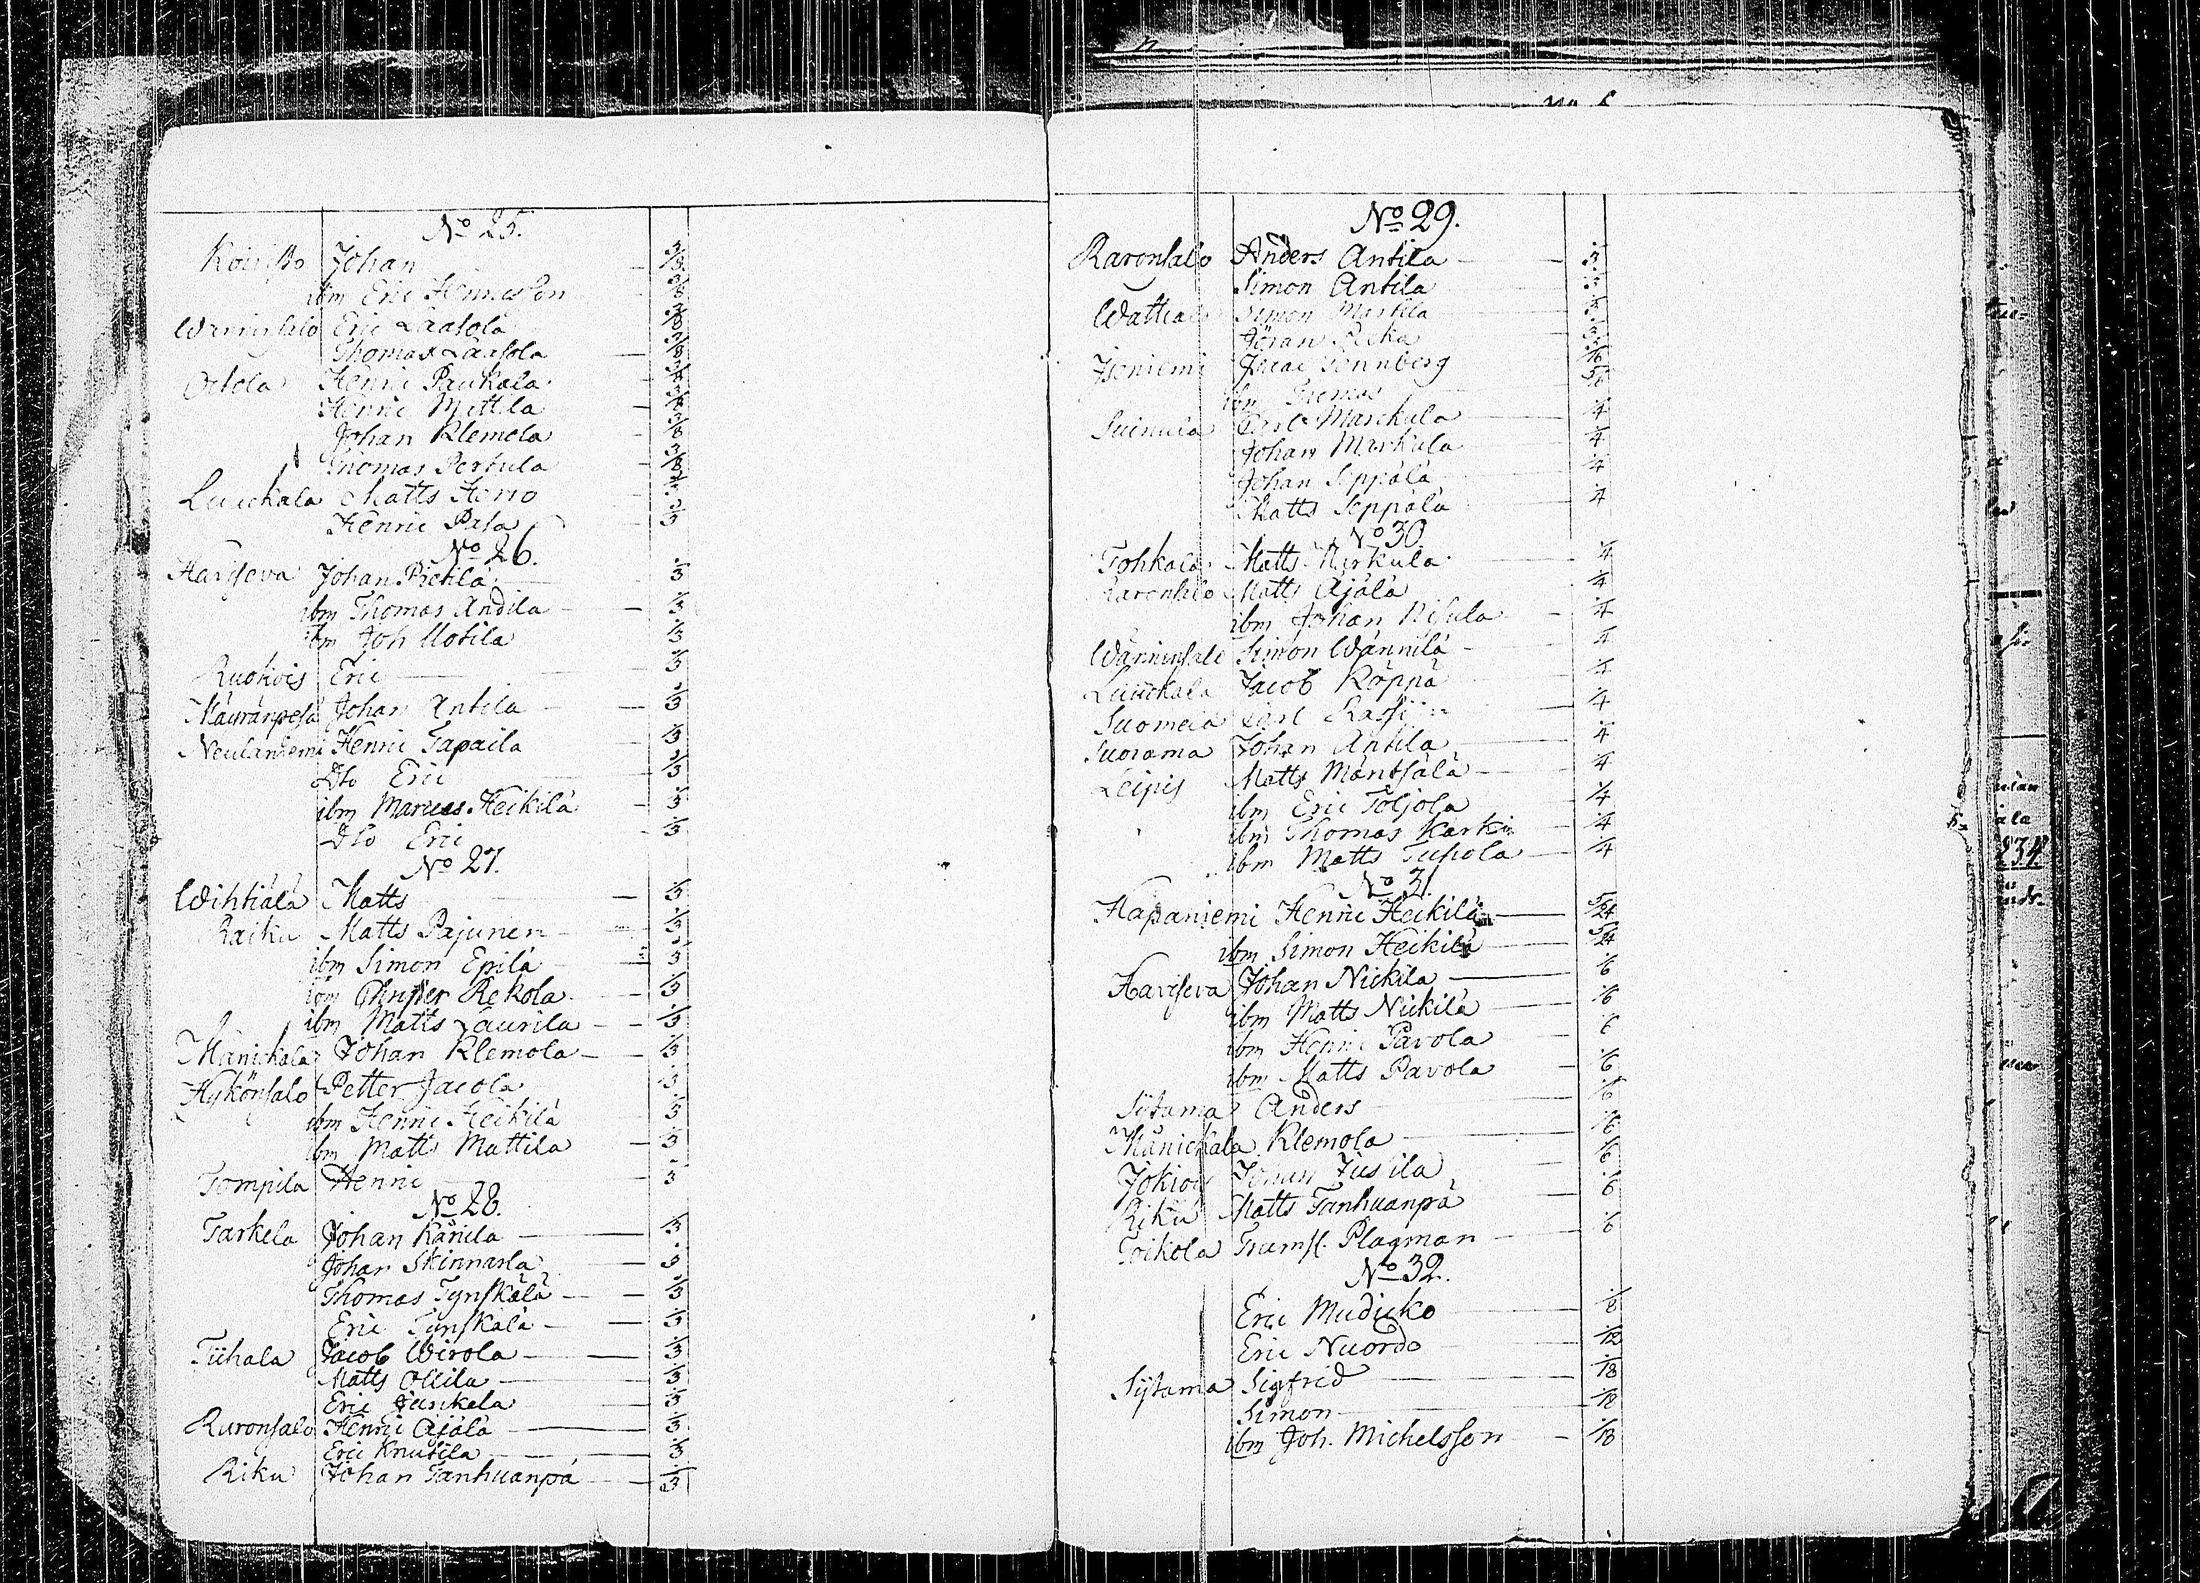 No 25.
Koivisto Johan — 3/8
ibm Eric Hennesson 3/8
Wänninsalo Eric Laasola 3/8
Thomas Laasola — 3/8
Ortola Henric Paukala 3/8
Henric Mattila — 3/8
Johan Klemola — 3/8
Thomas Pertula — 3/8
Luuckala Matts Hemo
Henric Pasa 1/3
No 26.
Haviseva Johan Pietilä — 1/3
ibm Thomas Andila — 1/3
ibm Joh Uotila 1/3
Ruokois Eric — 1/3
Mäuränpesä Johan Antila — 1/3
Neulaniemi Henric Tapaila — 1/3
Dto Eric — 1/3
ibm Marcus Heikilä — 1/3
Dto Eric — 1/3
No 27.
Wihtiälä Matts — 1/3
Raiku Matts Pajunen — 1/3
ibm Simon Epilä — 1/3
ibm Christer Rekola — 1/3
ibm Matts Laurila — 1/3
Mänickälä Johan Klemola — 1/3
Hykönsalo Petter Jacola 1/3
ibm Henric Heikilä 1/3
ibm Matts Mattila — 1/3
Tompila Henric — 1/3
No 28.
Tarkela Johan Känila — 1/3
Johan Skinnarla — 1/3
Thomas Tynskälä — 1/3
Eric Tynskälä — 1/3
Tiihala Jacob Wirola — 1/3
Matts Ollila — 1/3
Eric Junkela — 1/3
Ruronsalo Henric Äjälä — 1/3
Eric Knutila — 1/3
Riku Johan Tanhuanpä — 1/3
No 29.
Raronsalo Anders Antila —
Simon Antila
Wattiala Simon Markila
Jöran Kska
Iseniemi Isaac Tennberg 5/16
ibm Thomas
Suinula Carl Marckula 1/4
Johan Markula 1/4
Johan Seppälä 1/4
Matts Seppälä 1/4
No 30
Tohkala Matts Kirkula 1/4
Raronsalo Matts Äjälä 1/4
ibm Johan Nisula — 1/4
Wänninsalo Simon Wännilä — 1/4
Luuckala Jacob Köppä 1/4
Suomela Carl Rassi — 1/4
Suorama Johan Antila — 1/4
Leipis Matts Mäntsälä — 1/4
ibm Eric Toljola — 1/4
ibm Thomas Karki — 1/4
ibm Matts Tupola — 1/4
No 31.
Hapaniemi Henric Heikilä — 5/24
ibm Simon Heikilä — 5/24
Haviseva Johan Nickila — 1/6
ibm Matts Nickilä — 1/6
ibm Henric Pavola — 1/6
ibm Matts Pavola — 1/6
Sijtama Anders — 1/6
Mänickala Klemola — 1/6
Jokiois Johan Jussila 1/6
Riku Matts Tanhuanpä — 1/6
Toikola Trumsl. Plagman — 1/6
No 32.
Eric Mudicko — 1/8
Eric Nuordo — 1/12
Sijtama Sigfrid — 1/18
Simon — 1/18
ibm Joh. Michelsson — 1/18